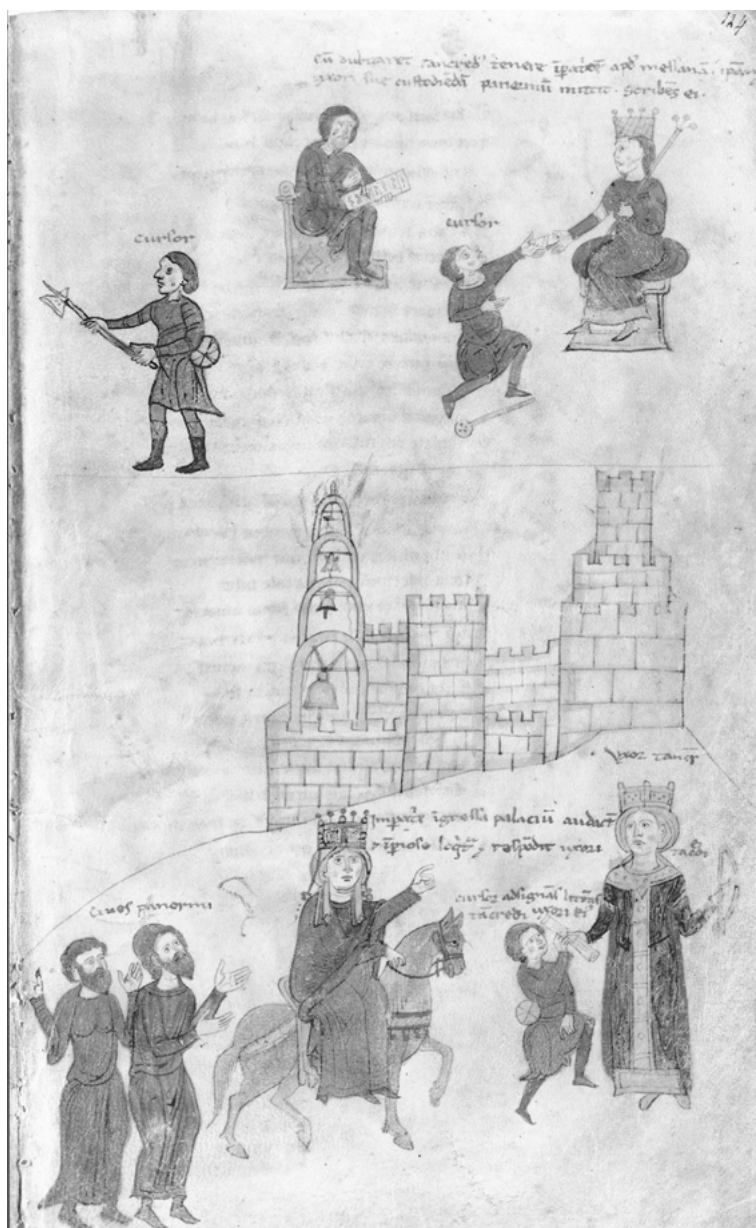 124
cū dubitaret tancred' tenere īpatcē apd' messanā. ipam
uxori sue custodiēdā panormū mittit. scribēs ei.
cursor
cursor
uxor tancr
Imperatx īgressa palaciū audact'
īpiose respōdit uxori
tācdi
cives panormi
cursor adsignās litteras
tācredi uxori ei'